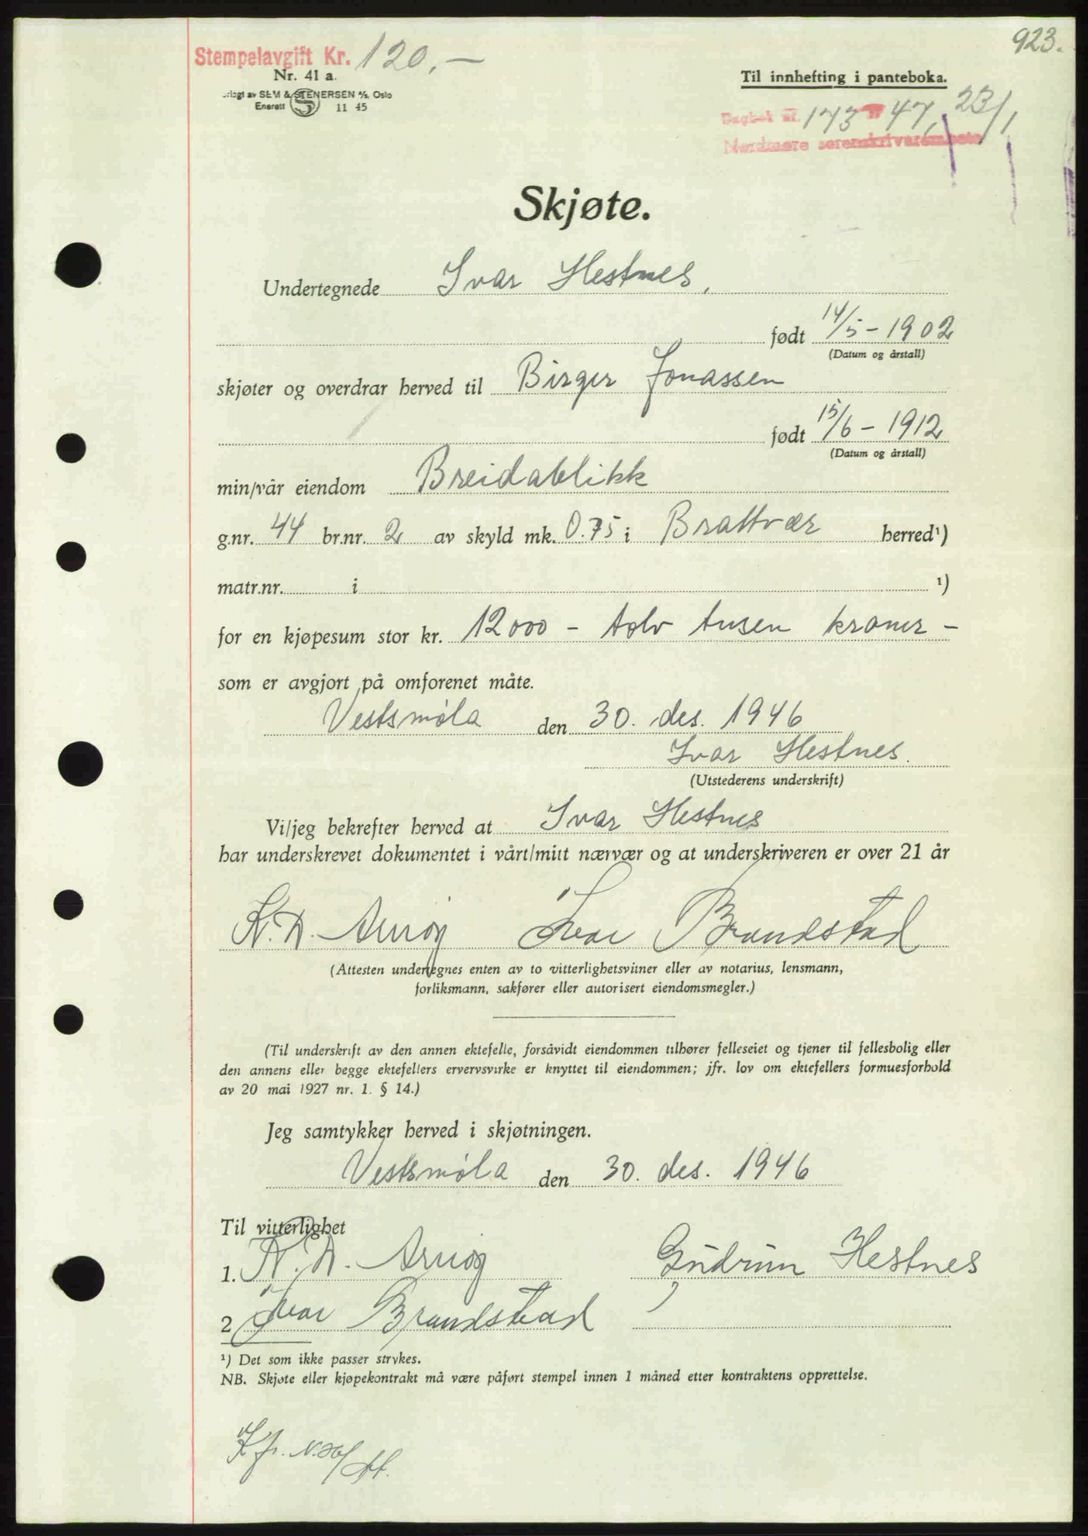 923.
Stempelavgift Kr. 120,—
Nr. 41 a.
SEM & STENERSEN A/S, Oslo
Enerett S 11 45
Til innhefting i panteboka.
Dagbok nr. 173 47, 23/1
Nordmøre sorenskriverembete
Skjøte.
Undertegnede Ivar Hestnes,
født 14/5 - 1902
(Datum og årstall)
skjøter og overdrar herved til Birger Jonassen
født 15/6 - 1912
(Datum og årstall)
min/vår eiendom Breidablikk
g.nr. 44 br.nr. 2 av skyld mk. 0.75 i Brattvær herred¹)
matr.nr. i ¹)
for en kjøpesum stor kr. 12000 - tolv tusen kroner -
som er avgjort på omforenet måte.
Vestsmøla den 30. des. 1946
Ivar Hestnes.
(Utstederens underskrift)
Vi/jeg bekrefter herved at Ivar Hestnes
har underskrevet dokumentet i vårt/mitt nærvær og at underskriveren er over 21 år
K. D. Arnøy Ivar Brandstad
(Attesten undertegnes enten av to vitterlighetsvitner eller av notarius, lensmann,
forliksmann, sakfører eller autorisert eiendomsmegler.)
(Til underskrift av den annen ektefelle, forsåvidt eiendommen tilhører felleseiet og tjener til fellesbolig eller
den annens eller begge ektefellers ervervsvirke er knyttet til eiendommen; jfr. lov om ektefellers formuesforhold
av 20 mai 1927 nr. 1. § 14.)
Jeg samtykker herved i skjøtningen.
Vestsmøla den 30. des. 1946
Til vitterlighet
1. K. D. Arnøy Gudrun Hestnes
2 Ivar Brandstad
¹) Det som ikke passer strykes.
NB. Skjøte eller kjøpekontrakt må være påført stempel innen 1 måned etter kontraktens opprettelse.